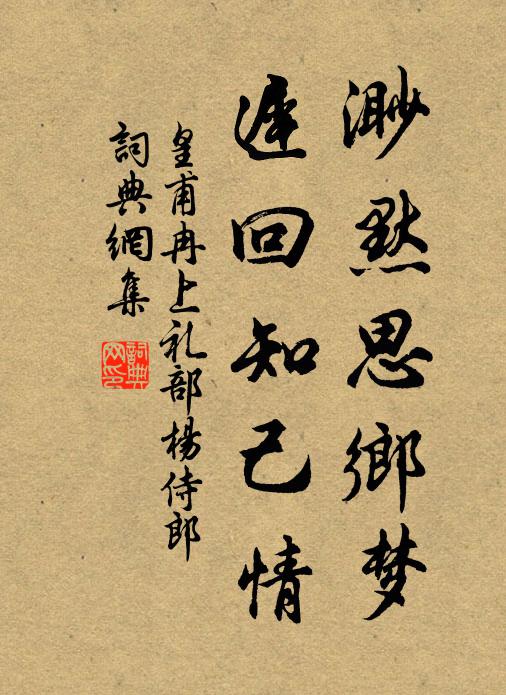 渺默思鄉梦
遲回知己情
皇甫冉上礼部楊侍郎
詞典網集
詞典网印